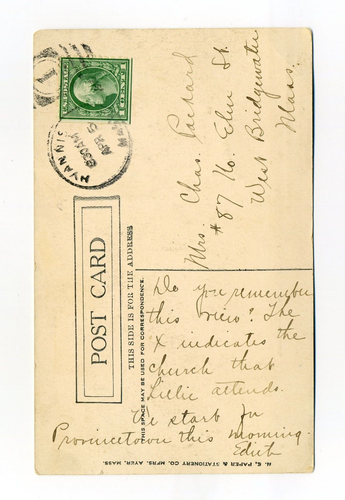 U.S. POSTAGE
1 CENT 1
1
HYANNIS
MASS
APR 5
830AM
Mrs. Chas. Packard
#87 No. Elm St.
West Bridgewater
Mass.
POST CARD
THIS SIDE IS FOR THE ADDRESS
THIS SPACE MAY BE USED FOR CORRESPONDENCE.
Do you remember
this view? The
X indicates the
church that
Lillie attends.
We start for
Provincetown this morning
Edith
N. E. PAPER & STATIONERY CO. MFRS. AYER, MASS.